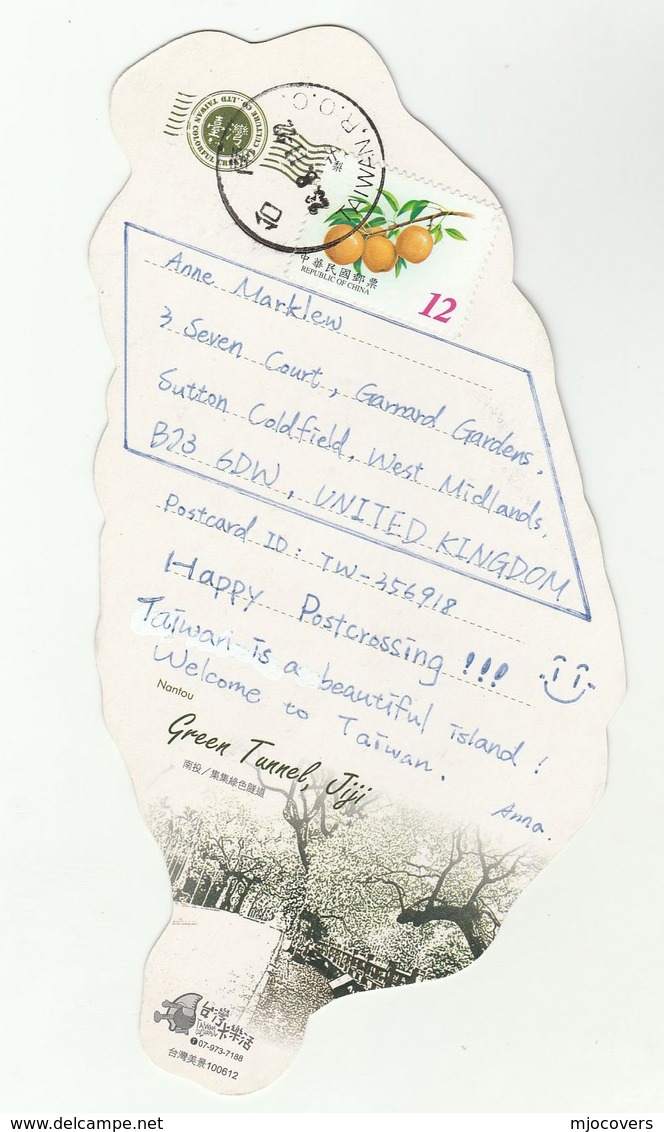 臺灣
TAIWAN COLORFUL CREATE CULTURE CO., LTD
TAIWAN, R.O.C.
中華民國郵票
REPUBLIC OF CHINA
12
Anne Marklew
3 Seven Court, Garrard Gardens,
Sutton Coldfield, West Midlands,
B23 6DW, UNITED KINGDOM
Postcard ID: TW-356918
Happy Postcrossing !!!
Taiwan is a beautiful island!
Welcome to Taiwan.
Anna.
Nantou
Green Tunnel, Jiji
南投／集集綠色隧道
台灣卡樂活
07-973-7188
台灣美景100612
delcampe.net
mjocovers